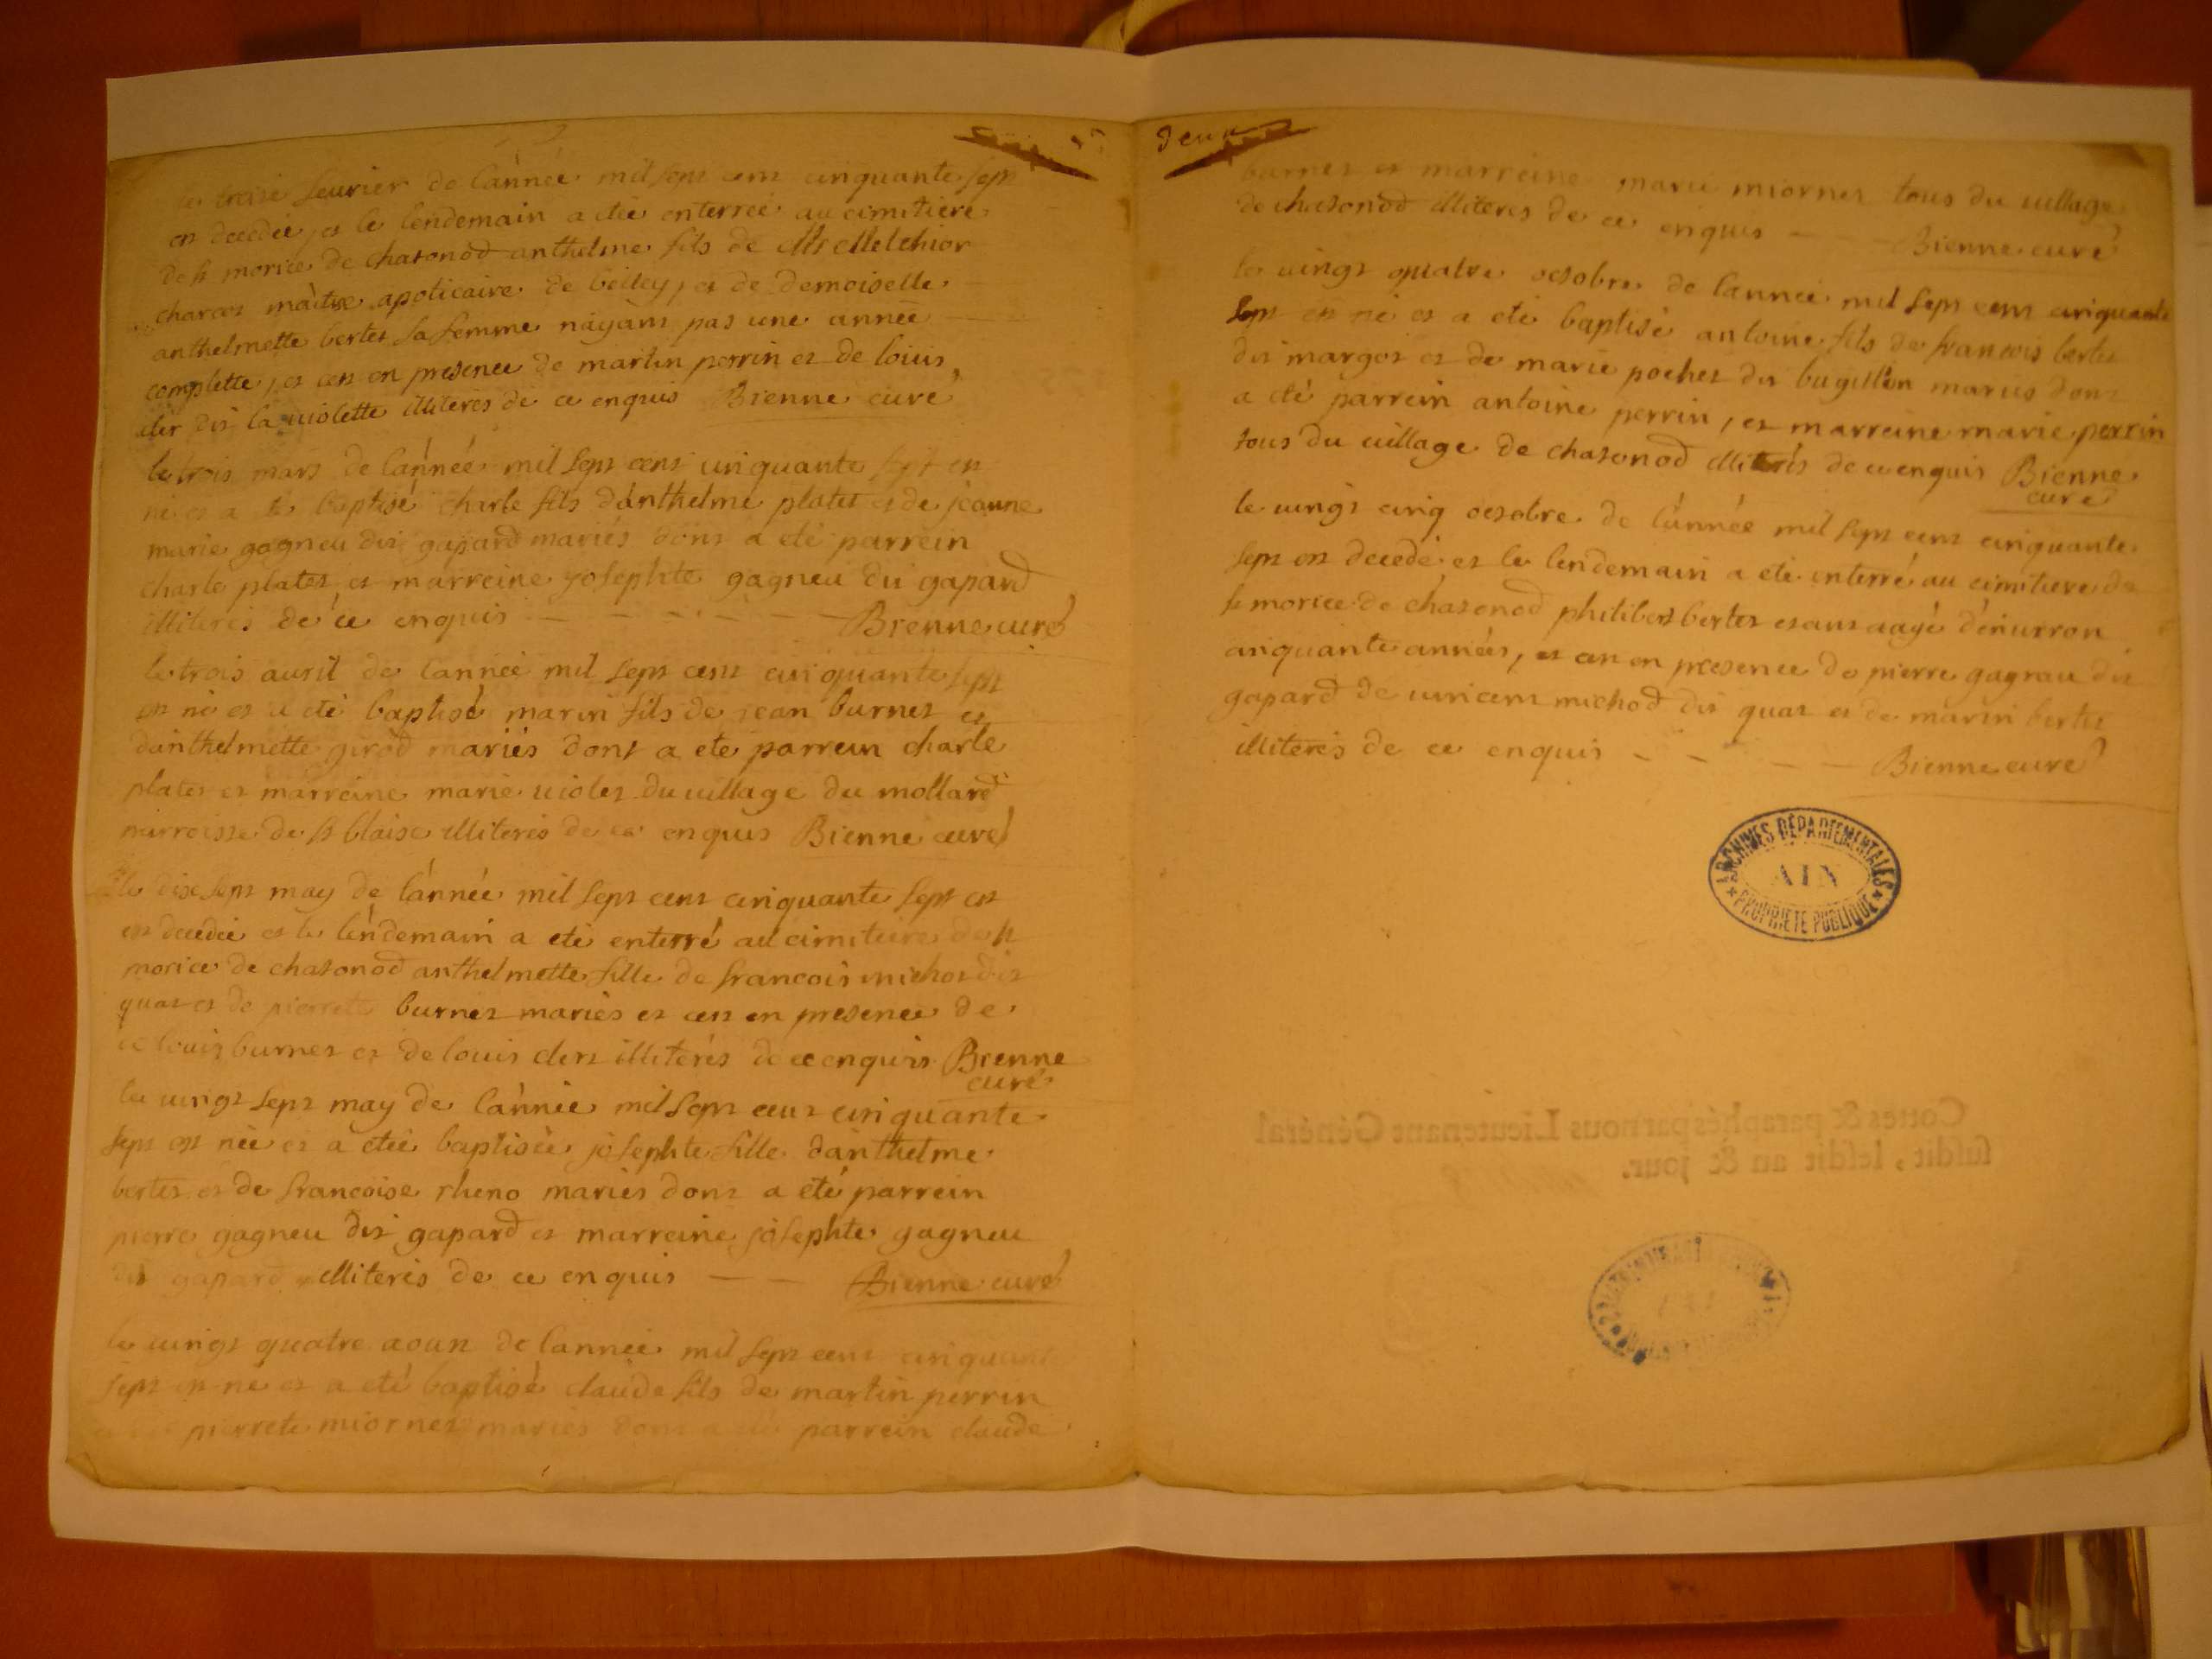 le treise feurier de l'année mil sept cent cinquante sept
est decedée, et le lendemain a etée enterreé au cimitiere
de st morice de chasonod anthelme fils de Mr Melchior
charcot maître apoticaire de belley, et de demoiselle
anthelmette bertet sa femme n'ayant pas une année
complette, et cest en presence de martin perrin et de louis
dit la violette illiterés de ce enquis Bienne curé
le trois mars de l'année mil sept cent cinquante sept est
né et a eté baptisé charle fils d'anthelme platet et de jeanne
marie gagneu dit gapard mariés dont a eté parrein
charle platet et marreine josephte gagneu dit gapard
illiterés de ce enquis Bienne curé
le trois auril de l'année mil sept cent cinquante sept
est né et a eté baptisé marin fils de jean burnet et
d'anthelmette girod mariés dont a eté parrein charle
platet et marreine marie violet du village du mollard
parroisse de st blaise illiterés de ce enquis Bienne curé
le dix sept may de l'année mil sept cent cinquante sept est
est decedée et le lendemain a eté enterré au cimitiere de st
morice de chasonod anthelmette fille de francois michot dit
quat et de pierrette burnet mariés et cest en presence de
de louis burnet et de louis clert illiterés de ce enquis Bienne
curé
le vingt sept may de l'année mil sept cent cinquante
sept est née et a etée baptisée josephte fille d'anthelme
bertet et de francoise rheno mariés dont a eté parrein
pierre gagneu dit gapard et marreine josephte gagneu
dit gapard illiterés de ce enquis Bienne curé
le vingt quatre aoust de l'année mil sept cent cinquante
sept est né et a eté baptisé claude fils de martin perrin
pierrete miornet mariés dont a eté parrein claude
deux
burnet et marreine marie miornet tous du village
de chasonod illiterés de ce enquis Bienne curé
le vingt quatre octobre de l'année mil sept cent cinquante
sept est né et a eté baptisé antoine fils de francois bertet
dit margot et de marie pochet dit bugillon mariés dont
a eté parrein antoine perrin, et marreine marie perrin
tous du village de chasonod illiterés de ce enquis Bienne
curé
le vingt cinq octobre de l'année mil sept cent cinquante
sept est decedé et le lendemain a eté enterré au cimitiere de
st morice de chasonod philibert bertet esant aagé d'enuiron
cinquante années, et cest en presence de pierre gagneu dit
gapard de vincent michod dit quat et de marin bertet
illiterés de ce enquis Bienne curé
ARCHIVES DÉPARTEMENTALES
AIN
PROPRIÉTÉ PUBLIQUE
Cottés & paraphés par nous Lieutenant Général
susdit, lesdit an & jour.